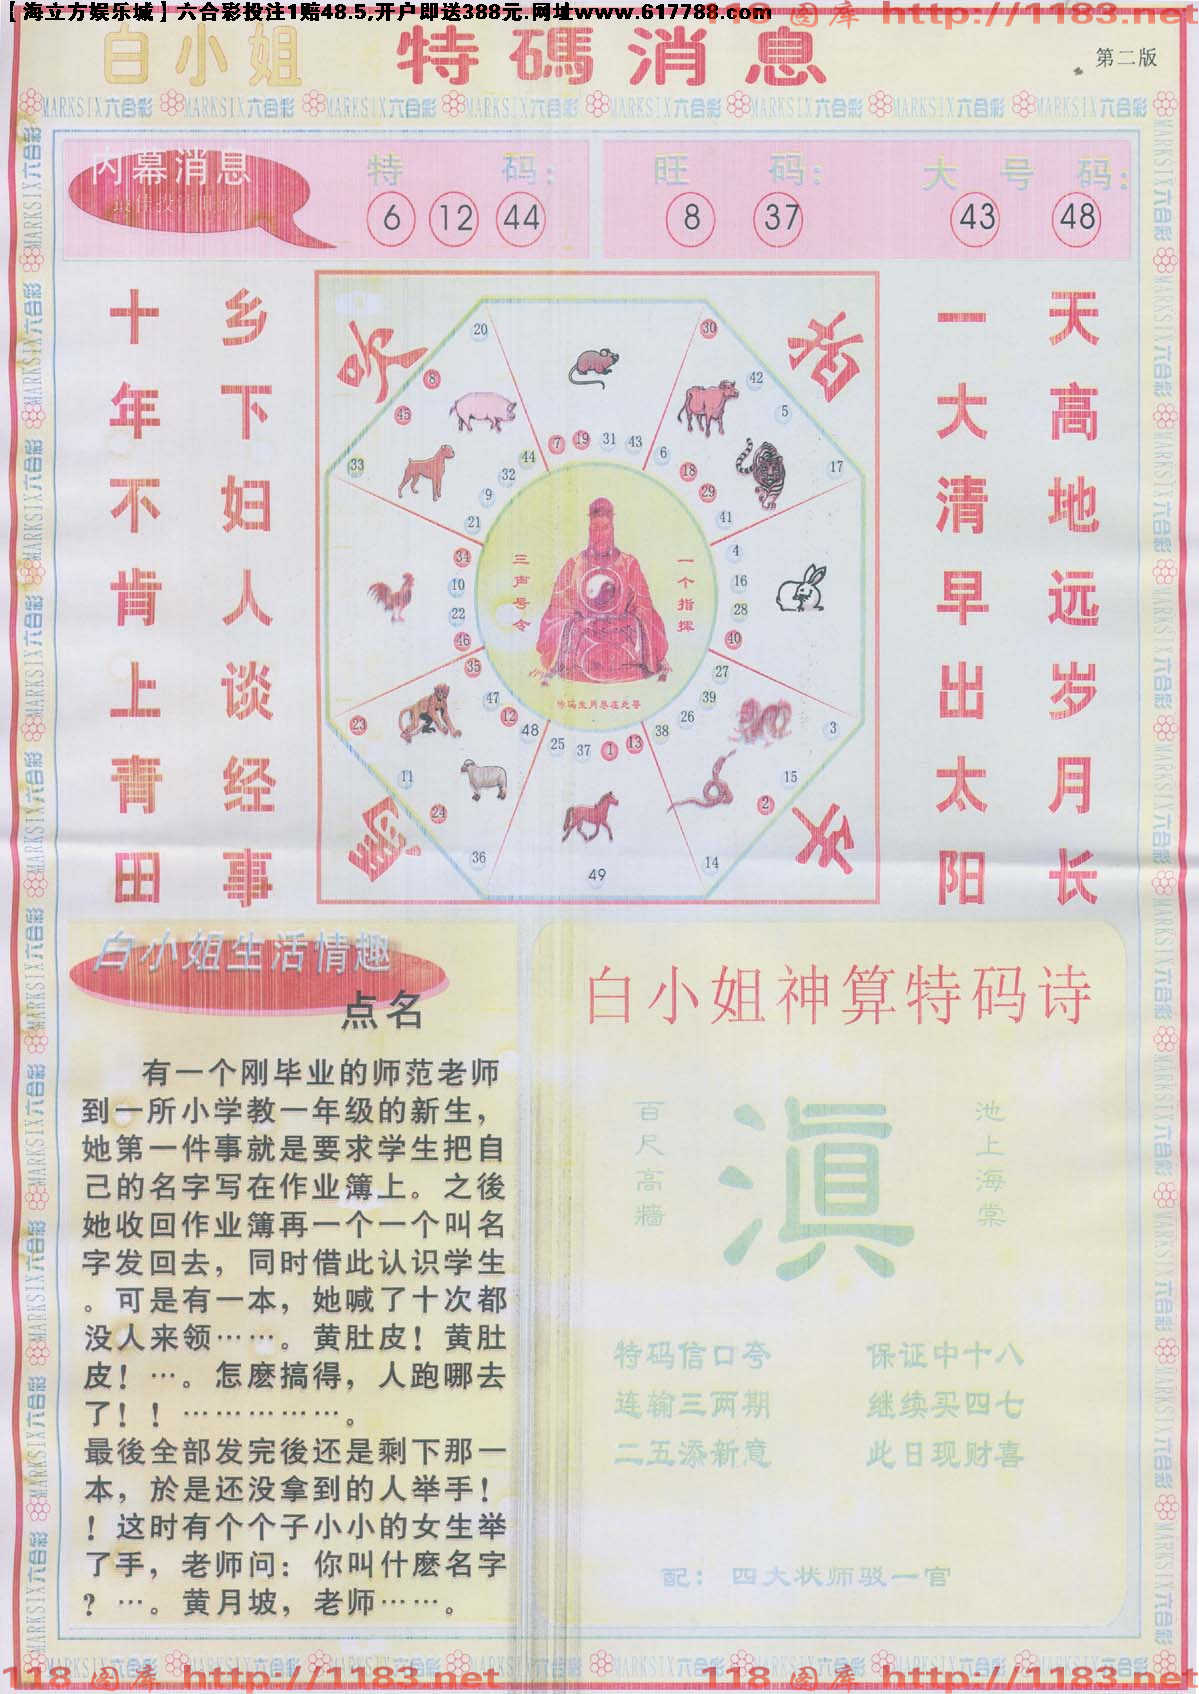 【海立方娱乐城】六合彩投注1赔48.5,开户即送388元.网址www.617788.com
118 图库 http://1183.net
白小姐 特碼消息
第二版
MARKSIX六合彩 MARKSIX六合彩 MARKSIX六合彩 MARKSIX六合彩 MARKSIX六合彩 MARKSIX六合彩 MARKSIX六合彩 MARKSIX六合彩
内幕消息
特 码:
6 12 44
旺 码:
8 37
大 号 码:
43 48
天高地远岁月长
一大清早出太阳
乡下妇人谈经事
十年不肯上青田
20 30
8 42
45 5
33 17
7 19 31 43
44 6
32 18
9 29
21 41
34 4
10 16
22 28
46 40
35 27
47 39
12 26
48 38
25 37 1 13
23 3
11 15
24 2
36 14
49
一个指挥
三声号令
白小姐生活情趣
点名
有一个刚毕业的师范老师
到一所小学教一年级的新生，
她第一件事就是要求学生把自
己的名字写在作业簿上。之後
她收回作业簿再一个一个叫名
字发回去，同时借此认识学生
。可是有一本，她喊了十次都
没人来领……。黄肚皮！黄肚
皮！…。怎麽搞得，人跑哪去
了！！……………。
最後全部发完後还是剩下那一
本，於是还没拿到的人举手！
！这时有个个子小小的女生举
了手，老师问：你叫什麽名字
？…。黄月坡，老师……。
白小姐神算特码诗
池上海棠
滇
百尺高牆
特码信口夸 保证中十八
连输三两期 继续买四七
二五添新意 此日现财喜
配：四大状师驳一官
118 图库 http://1183.net 118 图库 http://1183.net